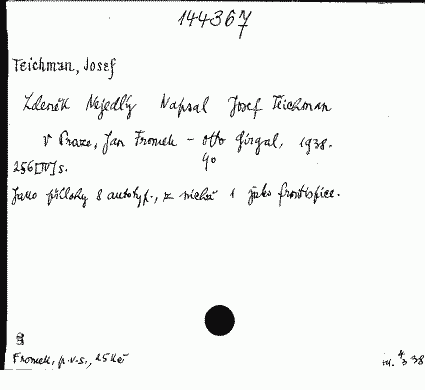 144367
Teichman, Josef
Zdeněk Nejedlý Napsal Josef Teichman
V Praze, Jan Fromek - Otto Girgal, 1938.
8°
256[IV] s.
Jako přílohy 8 autotyp., z nichž 1 jako frontispice.
Fromek, p.v.s., 25 Kč
4/3 38